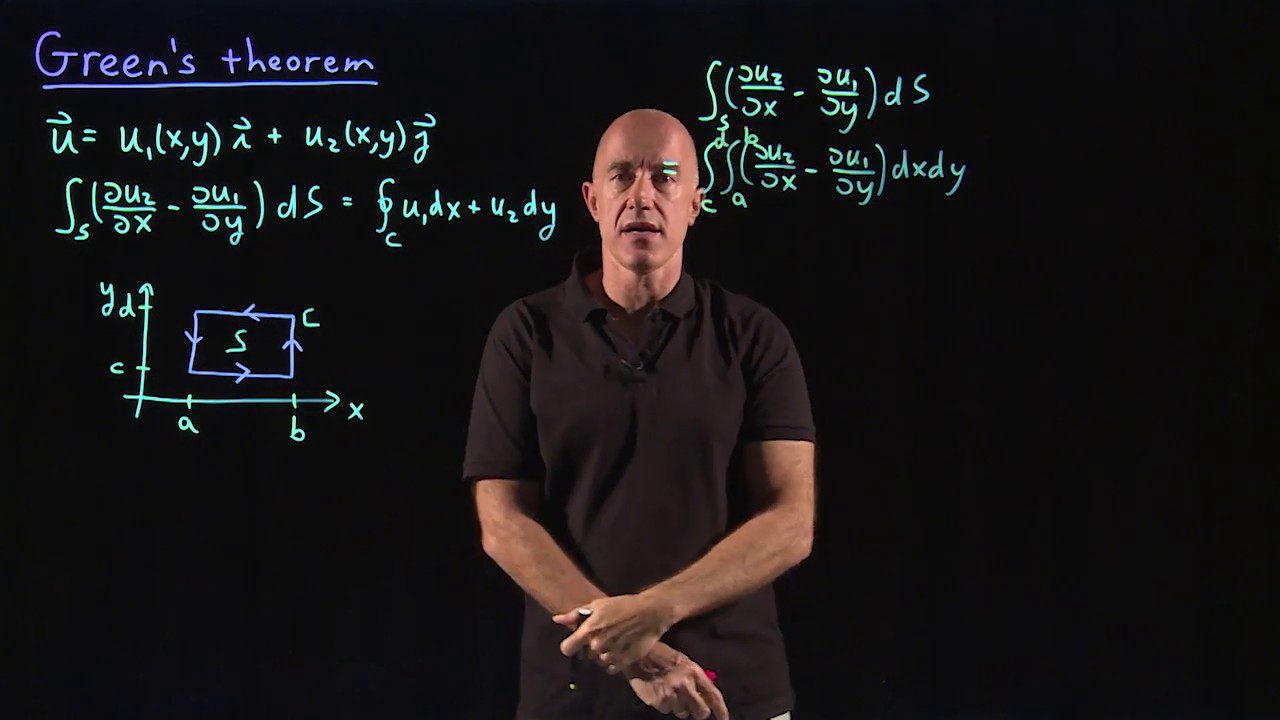 Green's theorem
u⃗ = u₁(x,y) i⃗ + u₂(x,y) j⃗
∫_S (∂u₂/∂x - ∂u₁/∂y) dS = ∮_C u₁dx + u₂dy
y
d
C
S
c
x
a
b
∫_S (∂u₂/∂x - ∂u₁/∂y) dS
= ∫_c^d ∫_a^b (∂u₂/∂x - ∂u₁/∂y) dxdy